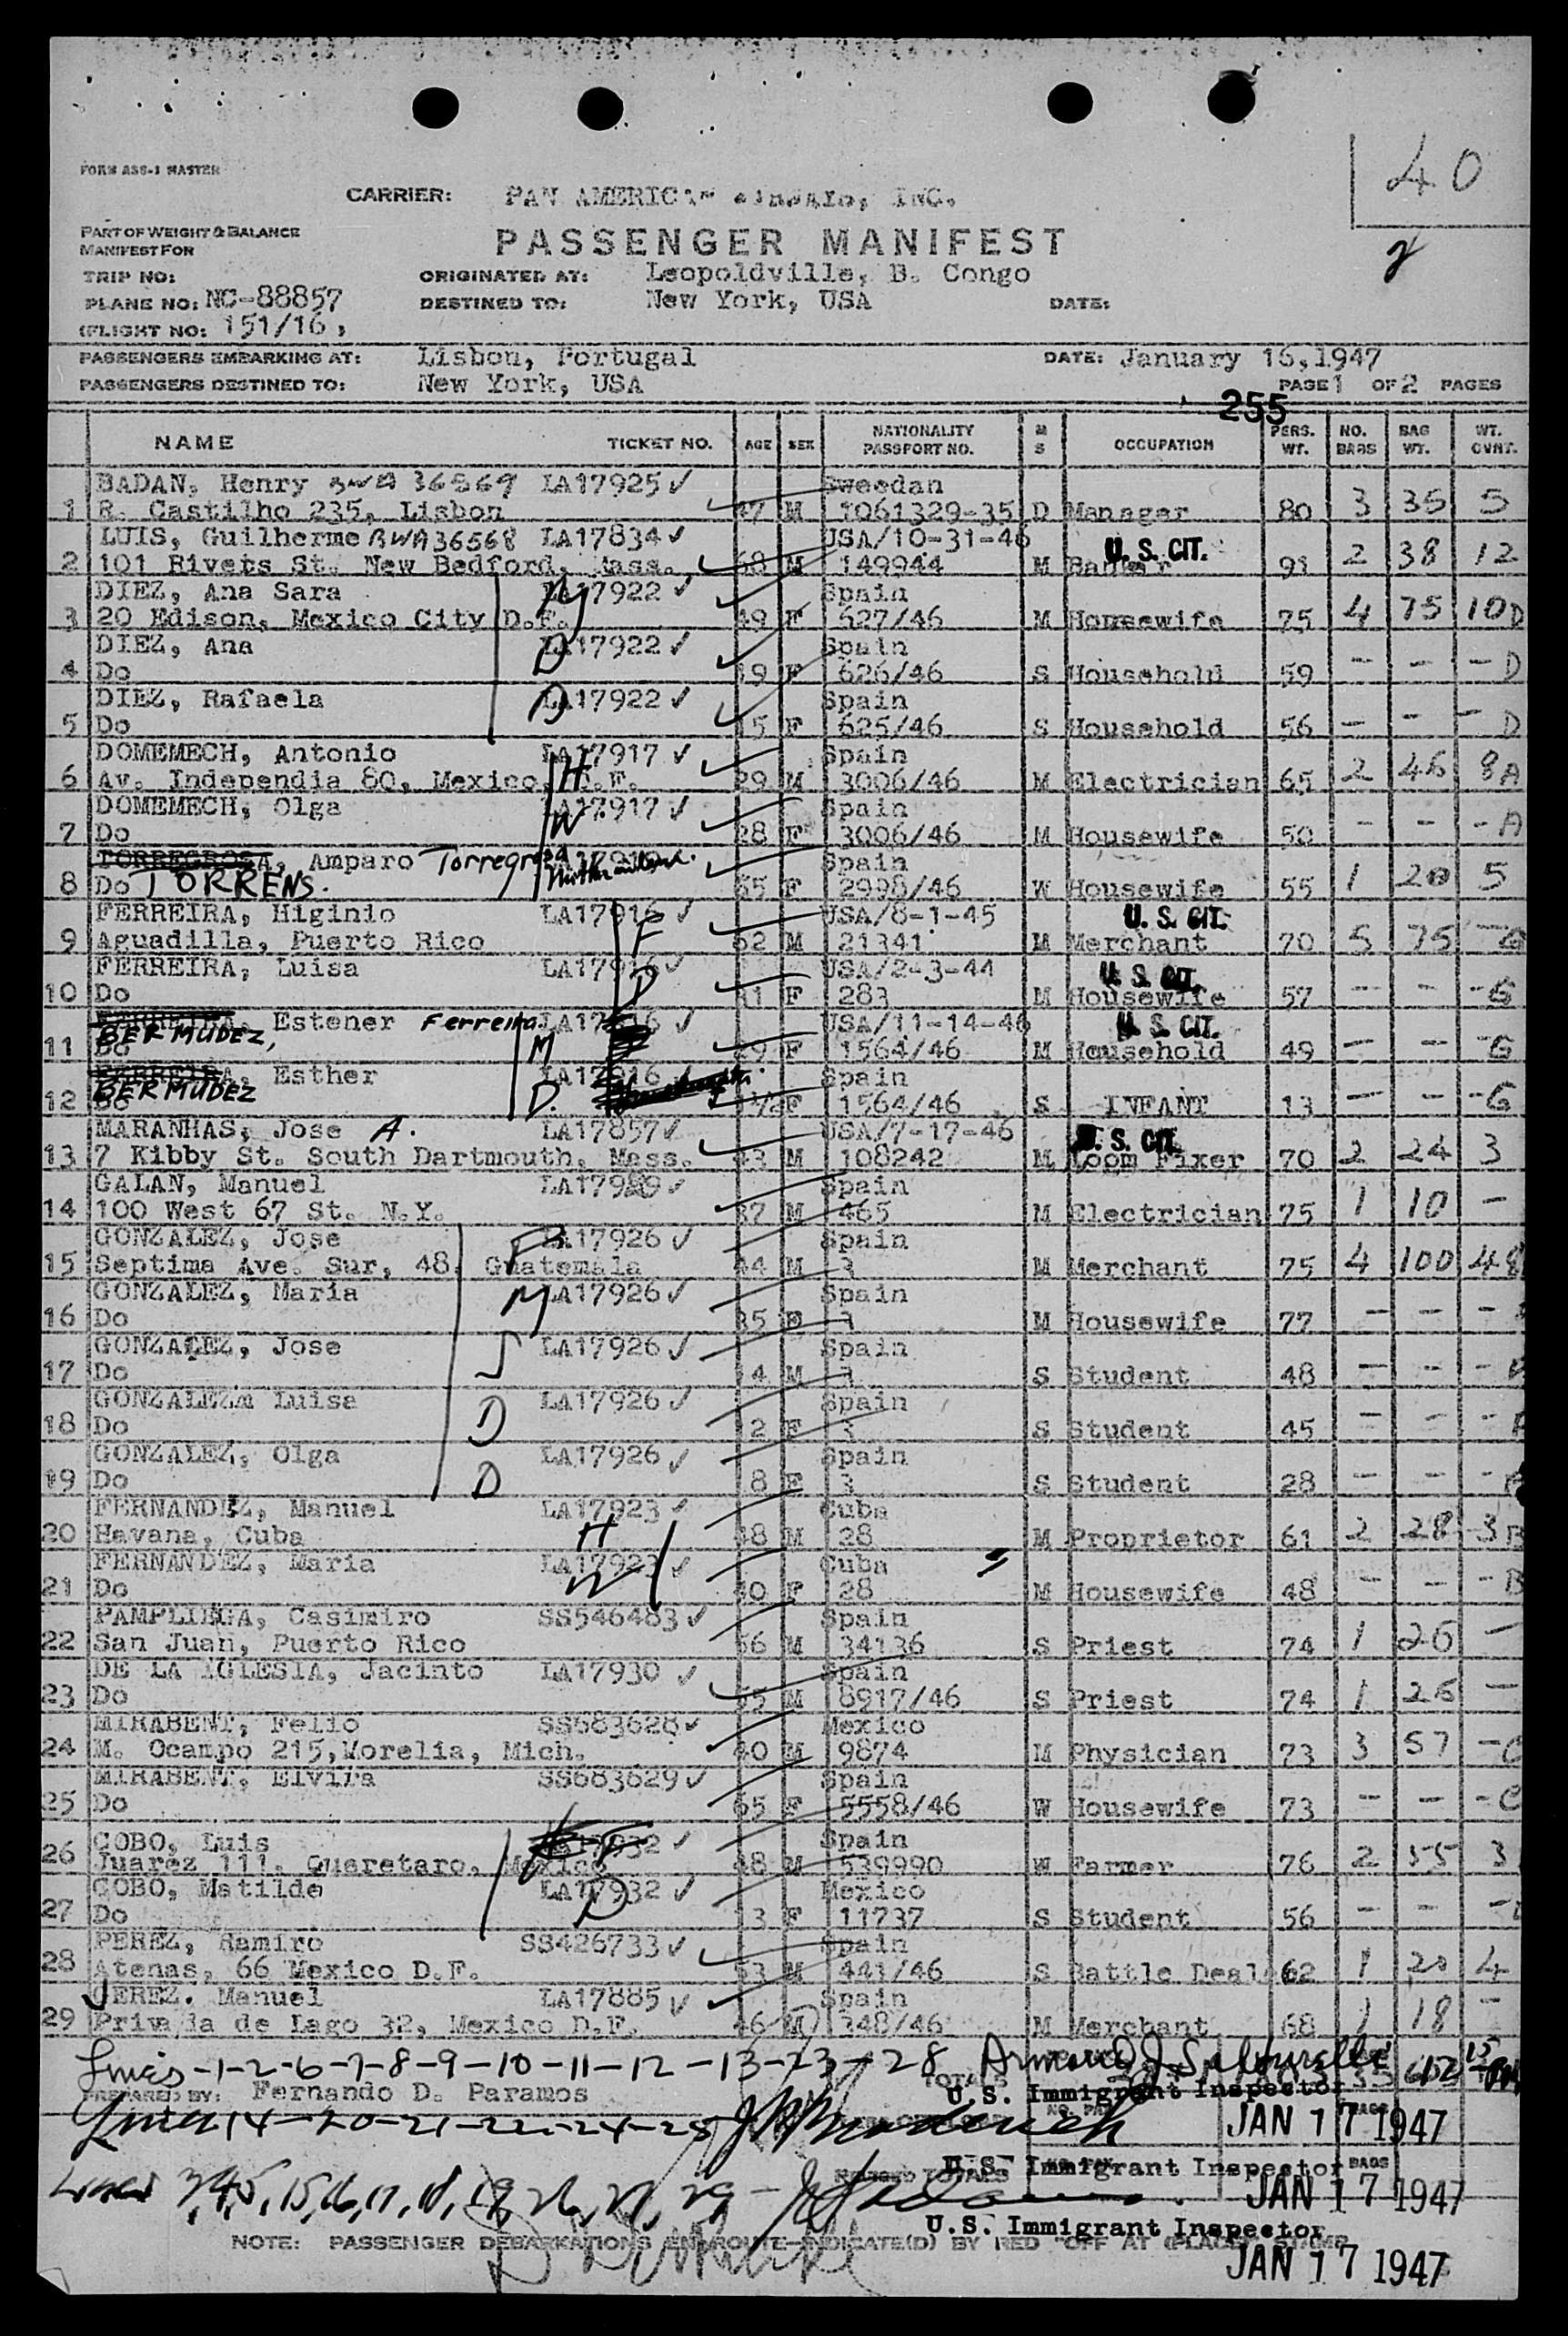 FORM ASS-1 MASTER
40
CARRIER: PAN AMERICAN INC.
PART OF WEIGHT & BALANCE
MANIFEST FOR
PASSENGER MANIFEST
2
TRIP NO: ORIGINATED AT: Leopoldville, B. Congo
PLANE NO: NC-88857 DESTINED TO: New York, USA DATE:
(FLIGHT NO: 151/16,
PASSENGERS EMBARKING AT: Lisbon, Portugal DATE: January 16,1947
PASSENGERS DESTINED TO: New York, USA PAGE 1 OF 2 PAGES
255
NAME TICKET NO. AGE SEX NATIONALITY PASSPORT NO. M S OCCUPATION PERS. WT. NO. BAGS BAG WT. WT. OVHT.
BADAN, Henry BWA 36569 LA17925 ✓ Sweedan
1 R. Castilho 235, Lisbon 47 M 1061329-35 D Manager 80 3 35 5
LUIS, Guilherme BWA36568 LA17834 ✓ USA/10-31-46 U. S. CIT.
2 101 Rivers St. New Bedford, Mass. 68 M 149944 M 91 2 38 12
DIEZ, Ana Sara M LA17922 ✓ Spain
3 20 Edison, Mexico City D.F. 49 F 627/46 M Housewife 75 4 75 10 D
DIEZ, Ana D LA17922 ✓ Spain
4 Do 19 F 626/46 S Household 59 - - - D
DIEZ, Rafaela D LA17922 ✓ Spain
5 Do 15 F 625/46 S Household 56 - - - D
DOMEMECH, Antonio LA17917 ✓ Spain
6 Av. Independia 80, Mexico, D.F. H 39 M 3006/46 M Electrician 65 2 46 8 A
DOMEMECH, Olga LA17917 ✓ Spain
7 Do W 28 F 3006/46 M Housewife 50 - - - A
TORREGROSA, Amparo Torregrosa Spain
8 Do TORRENS. 55 F 2998/46 W Housewife 55 1 20 5
FERREIRA, Higinio LA17916 ✓ USA/8-1-45 U. S. CIT.
9 Aguadilla, Puerto Rico F 52 M 21341 M Merchant 70 5 75 - G
FERREIRA, Luisa LA17916 ✓ USA/2-3-44 U. S. CIT.
10 Do D F 283 M Housewife 57 - - - G
FERREIRA, Estener Ferreira LA17916 ✓ USA/11-14-46 U. S. CIT.
BERMUDEZ,
11 Do M 29 F 1564/46 M Household 49 - - - G
FERREIRA, Esther LA17916 ✓ Spain
BERMUDEZ
12 Do D. F 1564/46 S INFANT 13 - - - G
MARANHAS, Jose A. LA17857 ✓ USA/7-17-46 U. S. CIT.
13 7 Kibby St. South Dartmouth, Mass. 43 M 108242 M Loom Fixer 70 2 24 3
GALAN, Manuel ✓ Spain
14 100 West 67 St. N.Y. 37 M 465 M Electrician 75 1 10 -
GONZALEZ, Jose F LA17926 ✓ Spain
15 Septima Ave. Sur, 48, Guatemala 44 M 3 M Merchant 75 4 100 48
GONZALEZ, Maria M LA17926 ✓ Spain
16 Do 35 F 3 M Housewife 77 - - -
GONZALEZ, Jose LA17926 ✓ Spain
17 Do S 14 M 3 S Student 48 - - -
GONZALEZ, Luisa LA17926 ✓ Spain
18 Do D 12 F 3 S Student 45 - - -
GONZALEZ, Olga LA17926 ✓ Spain
19 Do D 8 F 3 S Student 28 - - -
FERNANDEZ, Manuel LA17923 ✓ Cuba
20 Havana, Cuba H 48 M 28 M Proprietor 61 2 28 3 B
FERNANDEZ, Maria LA17923 ✓ Cuba
21 Do W 40 F 28 M Housewife 48 - - - B
PAMPLIEGA, Casimiro SS546483 ✓ Spain
22 San Juan, Puerto Rico 56 M 34136 S Priest 74 1 26 -
DE LA IGLESIA, Jacinto LA17930 ✓ Spain
23 Do 55 M 8917/46 S Priest 74 1 26 -
MIRABENT, Felio SS683628 ✓ Mexico
24 M. Ocampo 215,Morelia, Mich. 40 M 9874 M Physician 73 3 57 - C
MIRABENT, Elvira SS683629 ✓ Spain
25 Do 65 F 5558/46 W Housewife 73 - - - C
COBO, Luis LA17932 ✓ Spain
26 Juarez 111, Queretaro, Mexico F 48 M 539990 W Farmer 76 2 55 3
COBO, Matilde LA17932 ✓ Mexico
27 Do D 13 F 11737 S Student 56 - - -
PEREZ, Ramiro SS426733 ✓ Spain
28 Atenas, 66 Mexico D.F. 53 M 441/46 S 62 1 20 4
JEREZ. Manuel LA17885 ✓ Spain
29 Privada de Lago 32, Mexico D.F. 46 M 348/46 M Merchant 68 1 18 -
Lines -1-2-6-7-8-9-10-11-12-13-23-28
TOTALS
PREPARED BY: Fernando D. Paramos U.S. Immigrant Inspector
Lines 14-20-21-22-24-25 JAN 17 1947
REVISED TOTALS U.S. Immigrant Inspector BAGS
JAN 17 1947
Lines 3,4,5,15,16,17,18,19,26,27,29
U.S. Immigrant Inspector
NOTE: PASSENGER DEBARKATIONS ENROUTE-INDICATE(D) BY RED "OFF AT (PLACE)" STAMP
JAN 17 1947